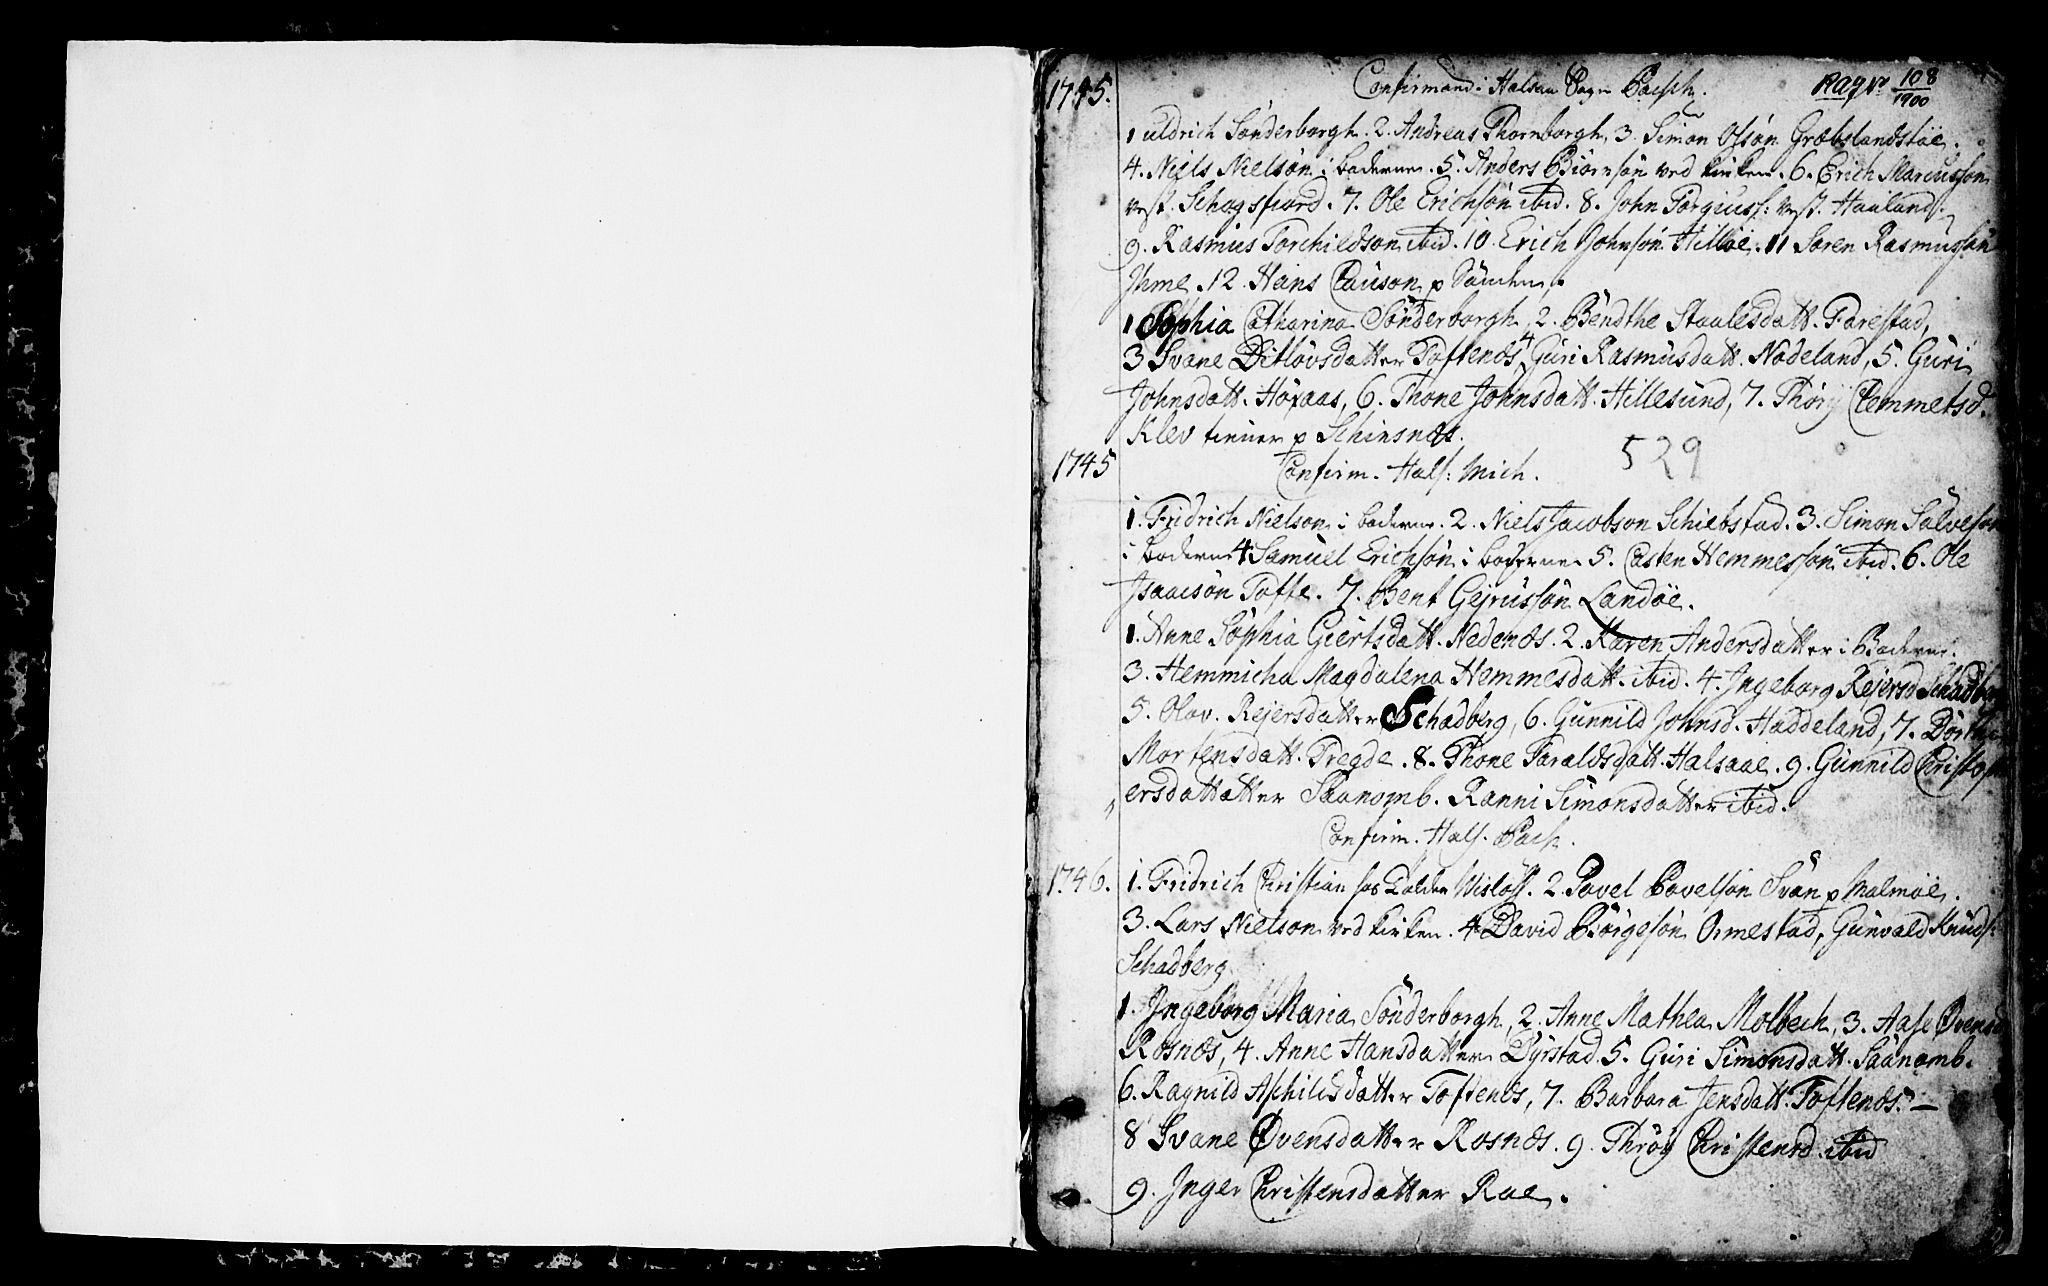 1745. Confirmand. i Halsaa Sogn Pasch. Rag No 108/1900
1 uldrich Sønderborgh. 2. Andreas Thornborgh, 3. Simon Olsøn Græbslandstøe.
4. Niels Nielsøn i boderne. 5. Anders Biørnsøn ved kirken. 6. Erich Marcussøn
vest. Schogsfiord. 7. Ole Erichsøn ibid. 8. John Torgiuss: vest. Haaland.
9. Rasmus Torchildson ibid. 10. Erich Johnsøn Hilløe. 11 Søren Rasmussøn
Ihme. 12 Hans Clauson p Sanden.
1 Sophia Catharina Sønderborgh, 2. Bendthe Staalesdatt. Farestad,
3 Svane Ditløvsdatter Toftenæs, 4 Guri Rasmusdatt. Nødeland, 5. Guri
Johnsdatt. Høyaas, 6. Thone Johnsdatt. Hillesund, 7. Thøry Clemmetsd.
Klev tiener p Schinsnæs.
529
1745 Confirm. Hals: Mich.
1. Fridrich Nielson i boderne. 2. Niels Jacobson Schiebstad. 3. Simon Salveson
i boderne 4 Samuel Erichsøn i boderne 5. Casten Hemmessøn ibid. 6. Ole
Isaacsøn Tofte. 7. Bent Gejrussøn Landøe.
1. Anne Sophia Giertsdatt. Nedenæs. 2. Karen Andersdatter i Boderne.
3. Hemmicha Magdalena Hemmesdatt. ibid. 4. Ingeborg Rejersd Schadberg
5. Olav. Rejersdatter Schadberg, 6. Gunnild Johnsd. Haddeland, 7. Dorthe
Mortensdatt. Tregde. 8. Thone Taraldsdatt. Halsaae. 9. Gunnild Christoph
ersdattatter Saanomb. Ranni Simonsdatter ibid.
Confirm. Hals. Pasch.
1746. 1. Fridrich Christian Wisløff. 2. Povel Povelsøn Svan p Malmøe.
3. Lars Nielson ved kirken. 4 David Børgesøn Ormestad, Gunvald Knuds:
Schadberg.
1. Ingeborg Maria Sønderborgh, 2. Anne Mathea Molbech, 3. Aase Øvensd
Rosnæs, 4. Anne Hansdatter Dyrstad. 5. Guri Simonsdatt. Saanomb.
6. Ragnild Aschildsdatter Toftenæs, 7. Barbara Jensdatt. Toftenæs. —
8 Svane Øvensdatter Rosnæs. 9. Thrøy Christensd. ibid
9. Inger Christensdatter Rae.